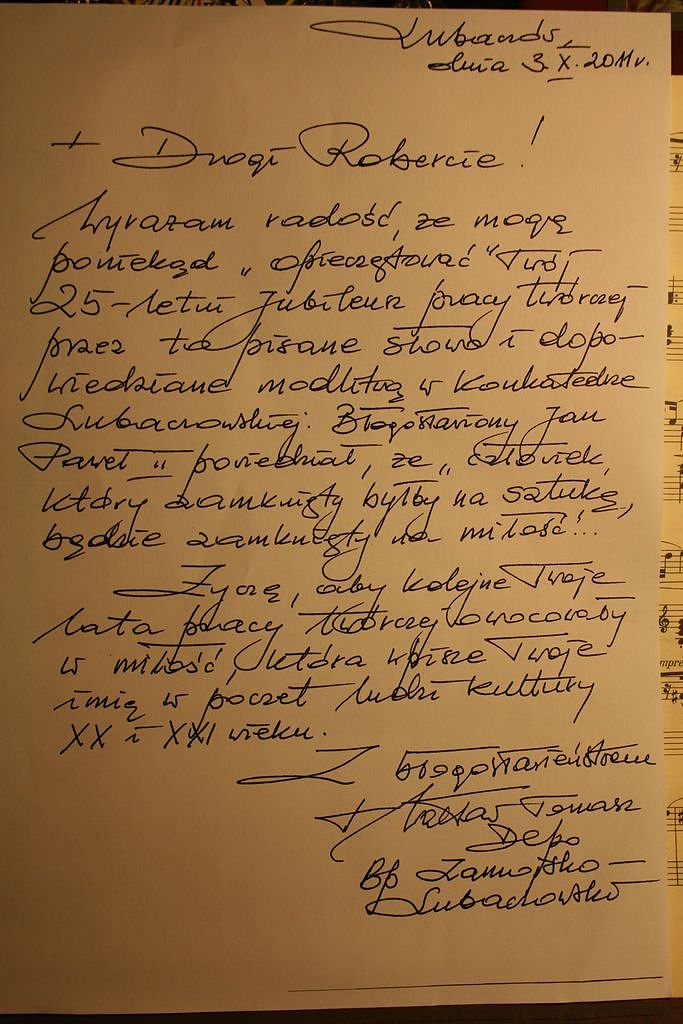 Lubaczów,
dnia 3.X.2011r.
+ Drogi Robercie!
Wyrażam radość, że mogę
poniekąd „opieczętować" Twój
25-letni Jubileusz pracy twórczej
przez to pisane słowo i dopo-
wiedziane modlitwą w Konkatedrze
Lubaczowskiej. Błogosławiony Jan
Paweł II powiedział, że „człowiek,
który zamknięty byłby na sztukę,
będzie zamknięty na miłość"...
Życzę, aby kolejne Twoje
lata pracy twórczej owocowały
w miłość, która wpisze Twoje
imię w poczet ludzi kultury
XX i XXI wieku.
Z błogosławieństwem
+ Wacław Tomasz
Depo
Bp Zamojsko-
Lubaczowski